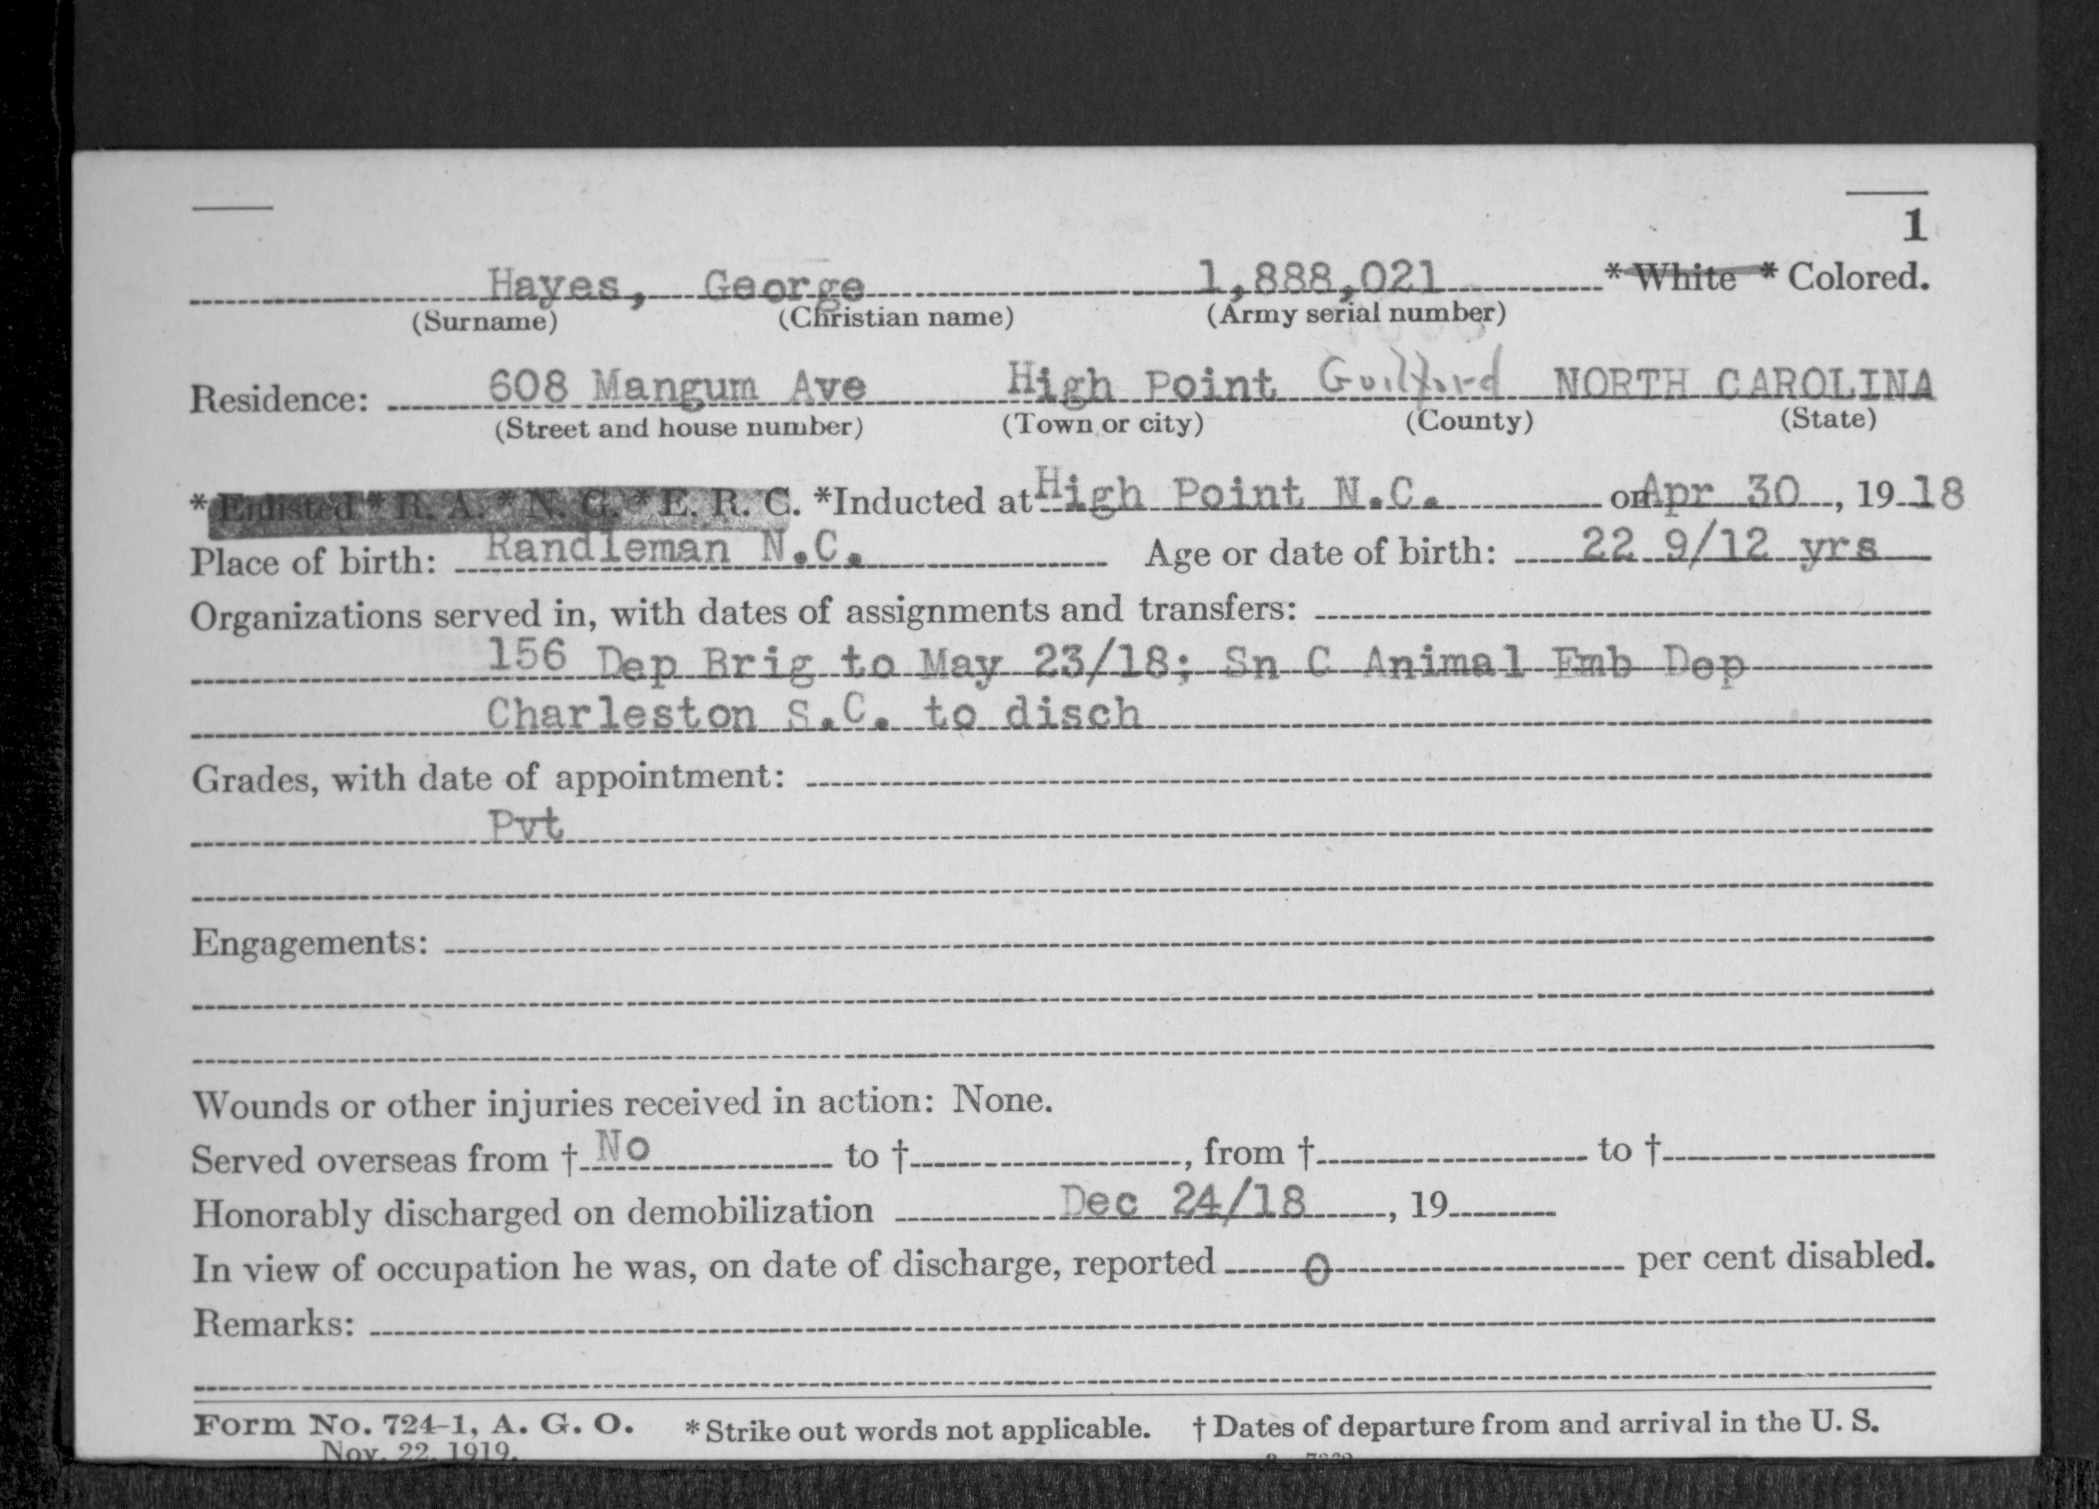 1
Hayes, George 1,888,021 * White * Colored.
(Surname) (Christian name) (Army serial number)
Residence: 608 Mangum Ave High Point Guilford NORTH CAROLINA
(Street and house number) (Town or city) (County) (State)
* Enlisted * R. A. * N. G. * E. R. C. *Inducted at High Point N.C. on Apr 30, 19 18
Place of birth: Randleman N.C. Age or date of birth: 22 9/12 yrs
Organizations served in, with dates of assignments and transfers:
156 Dep Brig to May 23/18; Sn C Animal Emb Dep
Charleston S.C. to disch
Grades, with date of appointment:
Pvt
Engagements:
Wounds or other injuries received in action: None.
Served overseas from † No to †, from † to †
Honorably discharged on demobilization Dec 24/18, 19
In view of occupation he was, on date of discharge, reported 0 per cent disabled.
Remarks:
Form No. 724-1, A. G. O. * Strike out words not applicable. † Dates of departure from and arrival in the U. S.
Nov. 22, 1919.